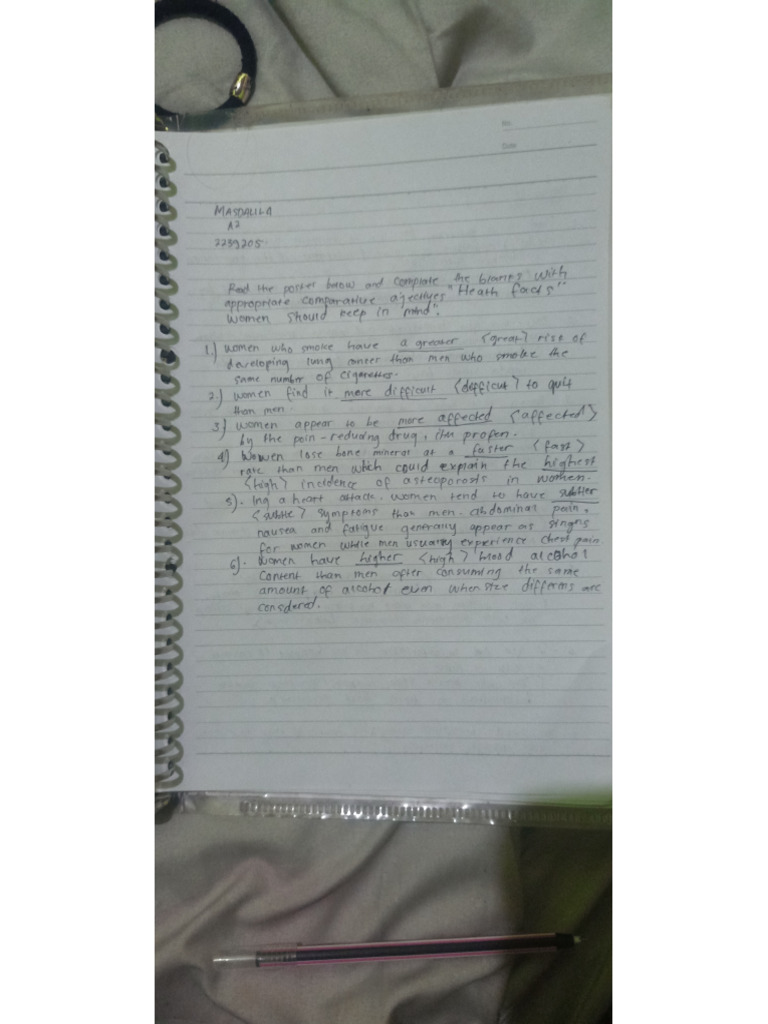 No.
Date
MASDALILA
A2
2239205.
Red the poster below and complate the blanks with
appropriate comparative ajectives "Heath facts"
women should keep in "mind".
1.) women who smoke have a greater (great) rise of
developing lung cancer than men who smoke the
same number of cigarettes.
2.) women find it more difficult (defficut) to quit
than men.
3) women appear to be more affected (affected)
by the pain-reducing drug, profen.
4) Women lose bone mineral at a faster (fast)
rate than men which could explain the highest
(high) incidence of asteoporosts in women.
5). Ing a heart attack. women tend to have subtler
(subtle) symptoms than men. abdominal pain,
nausea and fatigue generally appear as singns
for women while men usually experience chest pain.
6). women have higher (high) blood alcohol
content than men after consuming the same
amount of alcohol even when size differns are
considered.